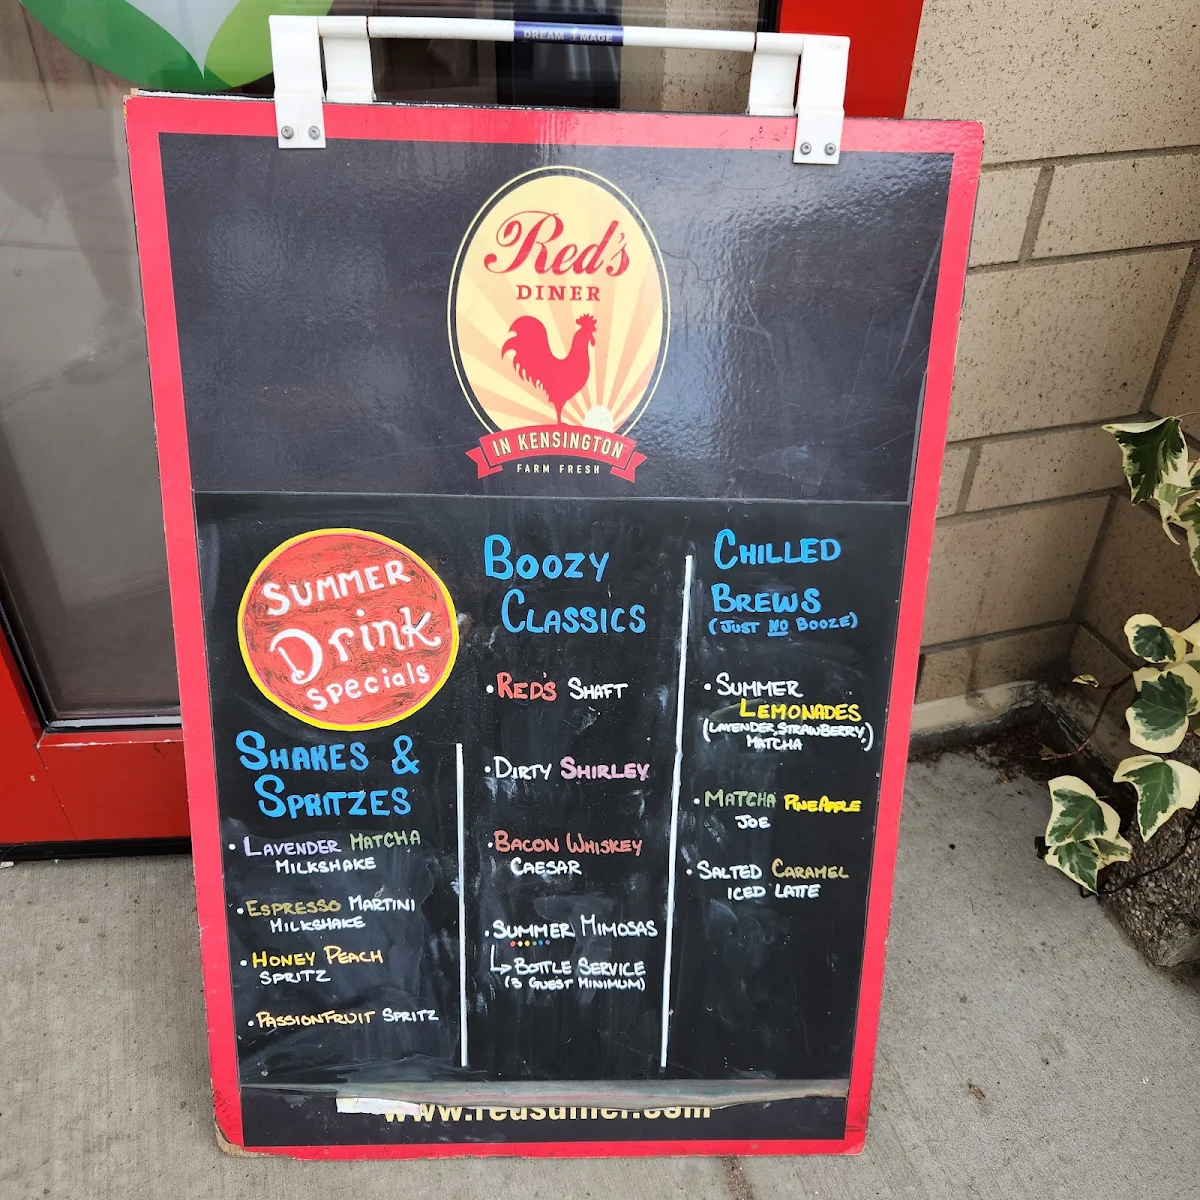 DREAM IMAGE
Red's
DINER
IN KENSINGTON
FARM FRESH
SUMMER
Drink
specials
SHAKES &
SPRITZES
• LAVENDER MATCHA
MILKSHAKE
• ESPRESSO MARTINI
MILKSHAKE
• HONEY PEACH
SPRITZ
• PASSIONFRUIT SPRITZ
BOOZY
CLASSICS
• RED'S SHAFT
• DIRTY SHIRLEY
• BACON WHISKEY
CAESAR
• SUMMER MIMOSAS
↳ BOTTLE SERVICE
(3 GUEST MINIMUM)
CHILLED
BREWS
(JUST NO BOOZE)
• SUMMER
LEMONADES
(LAVENDER, STRAWBERRY,
MATCHA)
• MATCHA PINEAPPLE
JOE
• SALTED CARAMEL
ICED LATTE
www.redsdiner.com